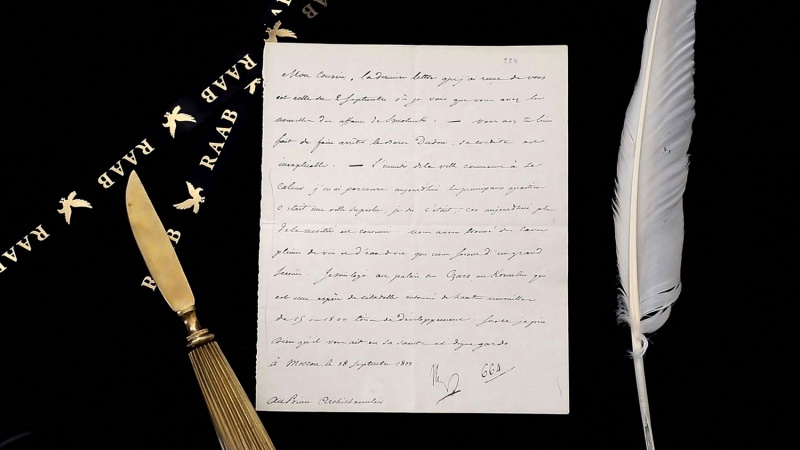 224
Mon Cousin, la dernière lettre que j'ai reçue de vous
est celle du 2 septembre où je vois que vous avez les
nouvelles des affaires de Smolensk. — vous avez très bien
fait de faire arrêter le Baron Dudon, sa conduite est
inexplicable. — l'incendie de la ville commence à se
calmer, j'en ai parcouru aujourd'hui les principaux quartiers
c'était une ville superbe, je dis c'était, car aujourd'hui plus
de la moitié est consumée. nous avons trouvé des caves
pleines de vin et d'eau de vie qui nous seront d'un grand
secours. Je suis logé au palais des Czars au Kremlin qui
est une espèce de citadelle entourée de hautes murailles
de 15 ou 1800 toises de développement. Sur ce je prie
Dieu qu'il vous ait en sa sainte et digne garde
à Moscou le 18 Septembre 1812
664
Au Prince Archichancelier
RAAB
RAAB
RAAB
RAAB
RAAB